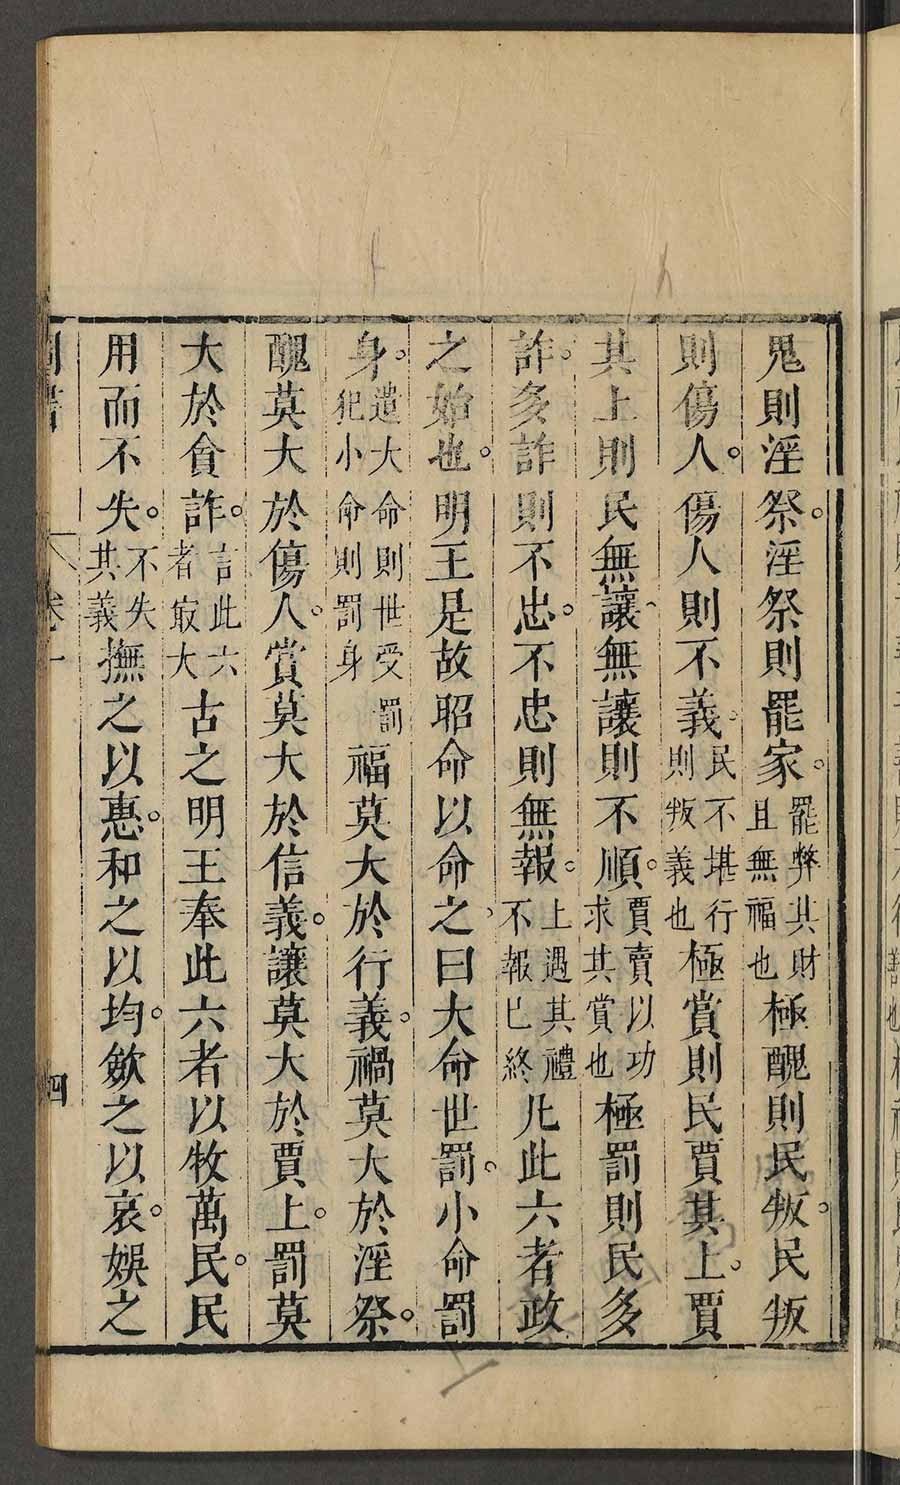 鬼則淫祭。淫祭則罷家。罷弊其財且無福也極醜則民叛。民叛
則傷人。傷人則不義。民不堪行則叛義也極賞則民賈其上。賈
其上則民無讓、無讓則不順。賈賣以功求其賞也極罰則民多
詐。多詐則不忠。不忠則無報。上遇其禮不報已終凡此六者政
之始也。明王是故昭命以命之、曰大命世罰。小命罰
身。遣大命則世受罰犯小命則罰身福莫大於行義。禍莫大於淫祭。
醜莫大於傷人。賞莫大於信義。讓莫大於賈上。罰莫
大於貪詐。言此六者㝡大古之明王奉此六者以牧萬民。民
用而不失。不失其義撫之以惠。和之以均。斂之以哀。娛之
卷一 四